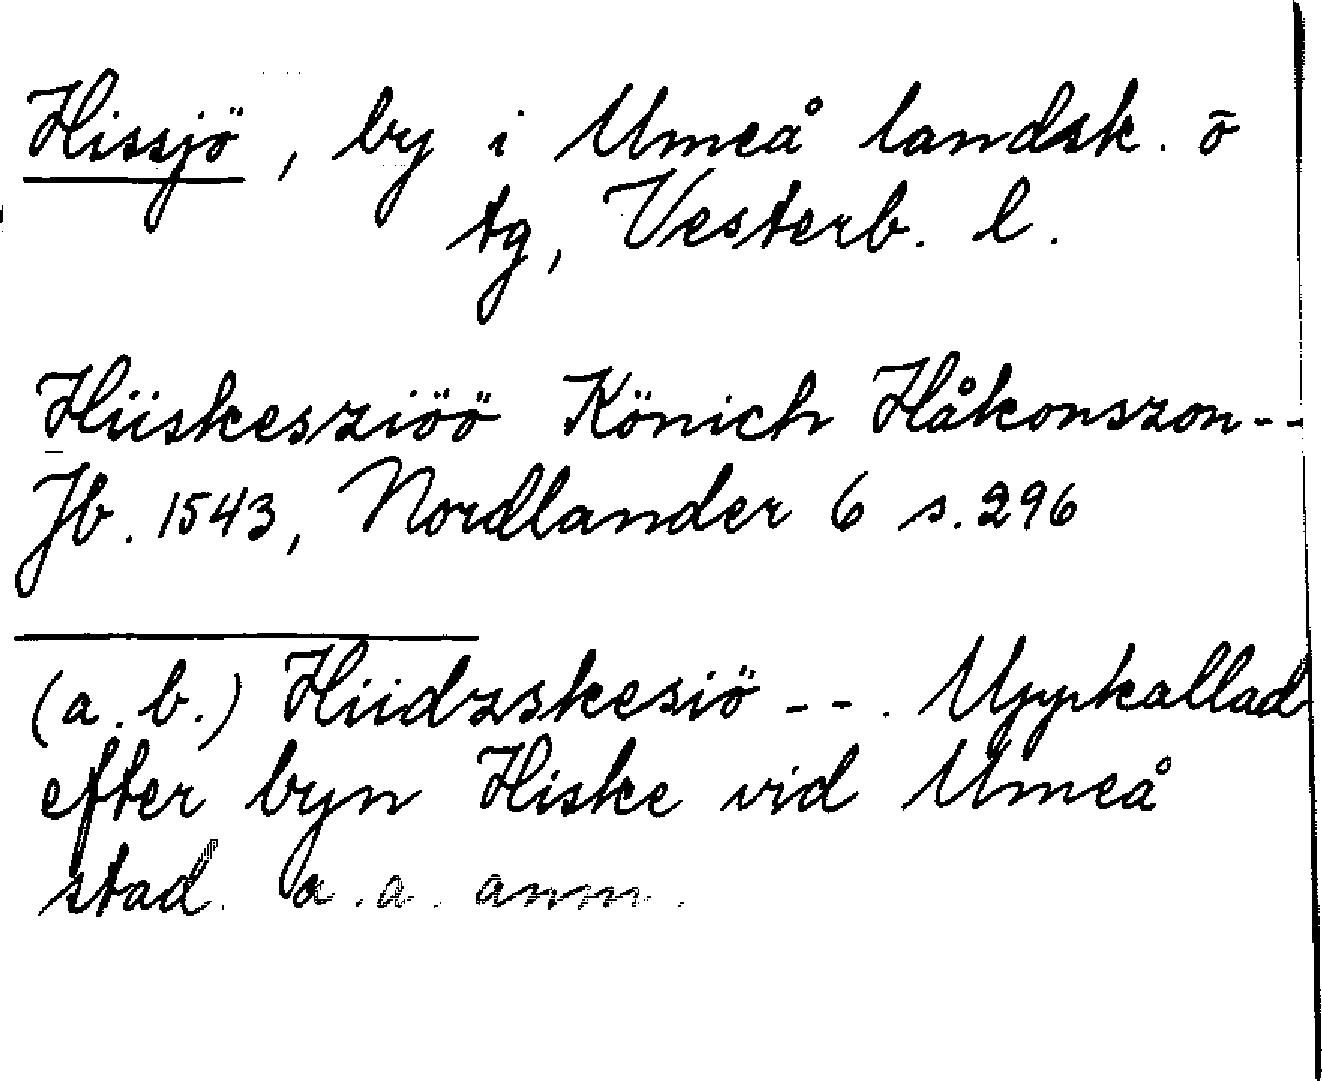 Hissjö, by i Umeå landsk. o
tg, Vesterb. l.
Hiiskesziöö Könich Håkonszon--
Jb. 1543, Nordlander 6 s. 296
(a. b.) Hiidzskesiö --. Uppkallad
efter byn Hiske vid Umeå
stad. a. a. anm.